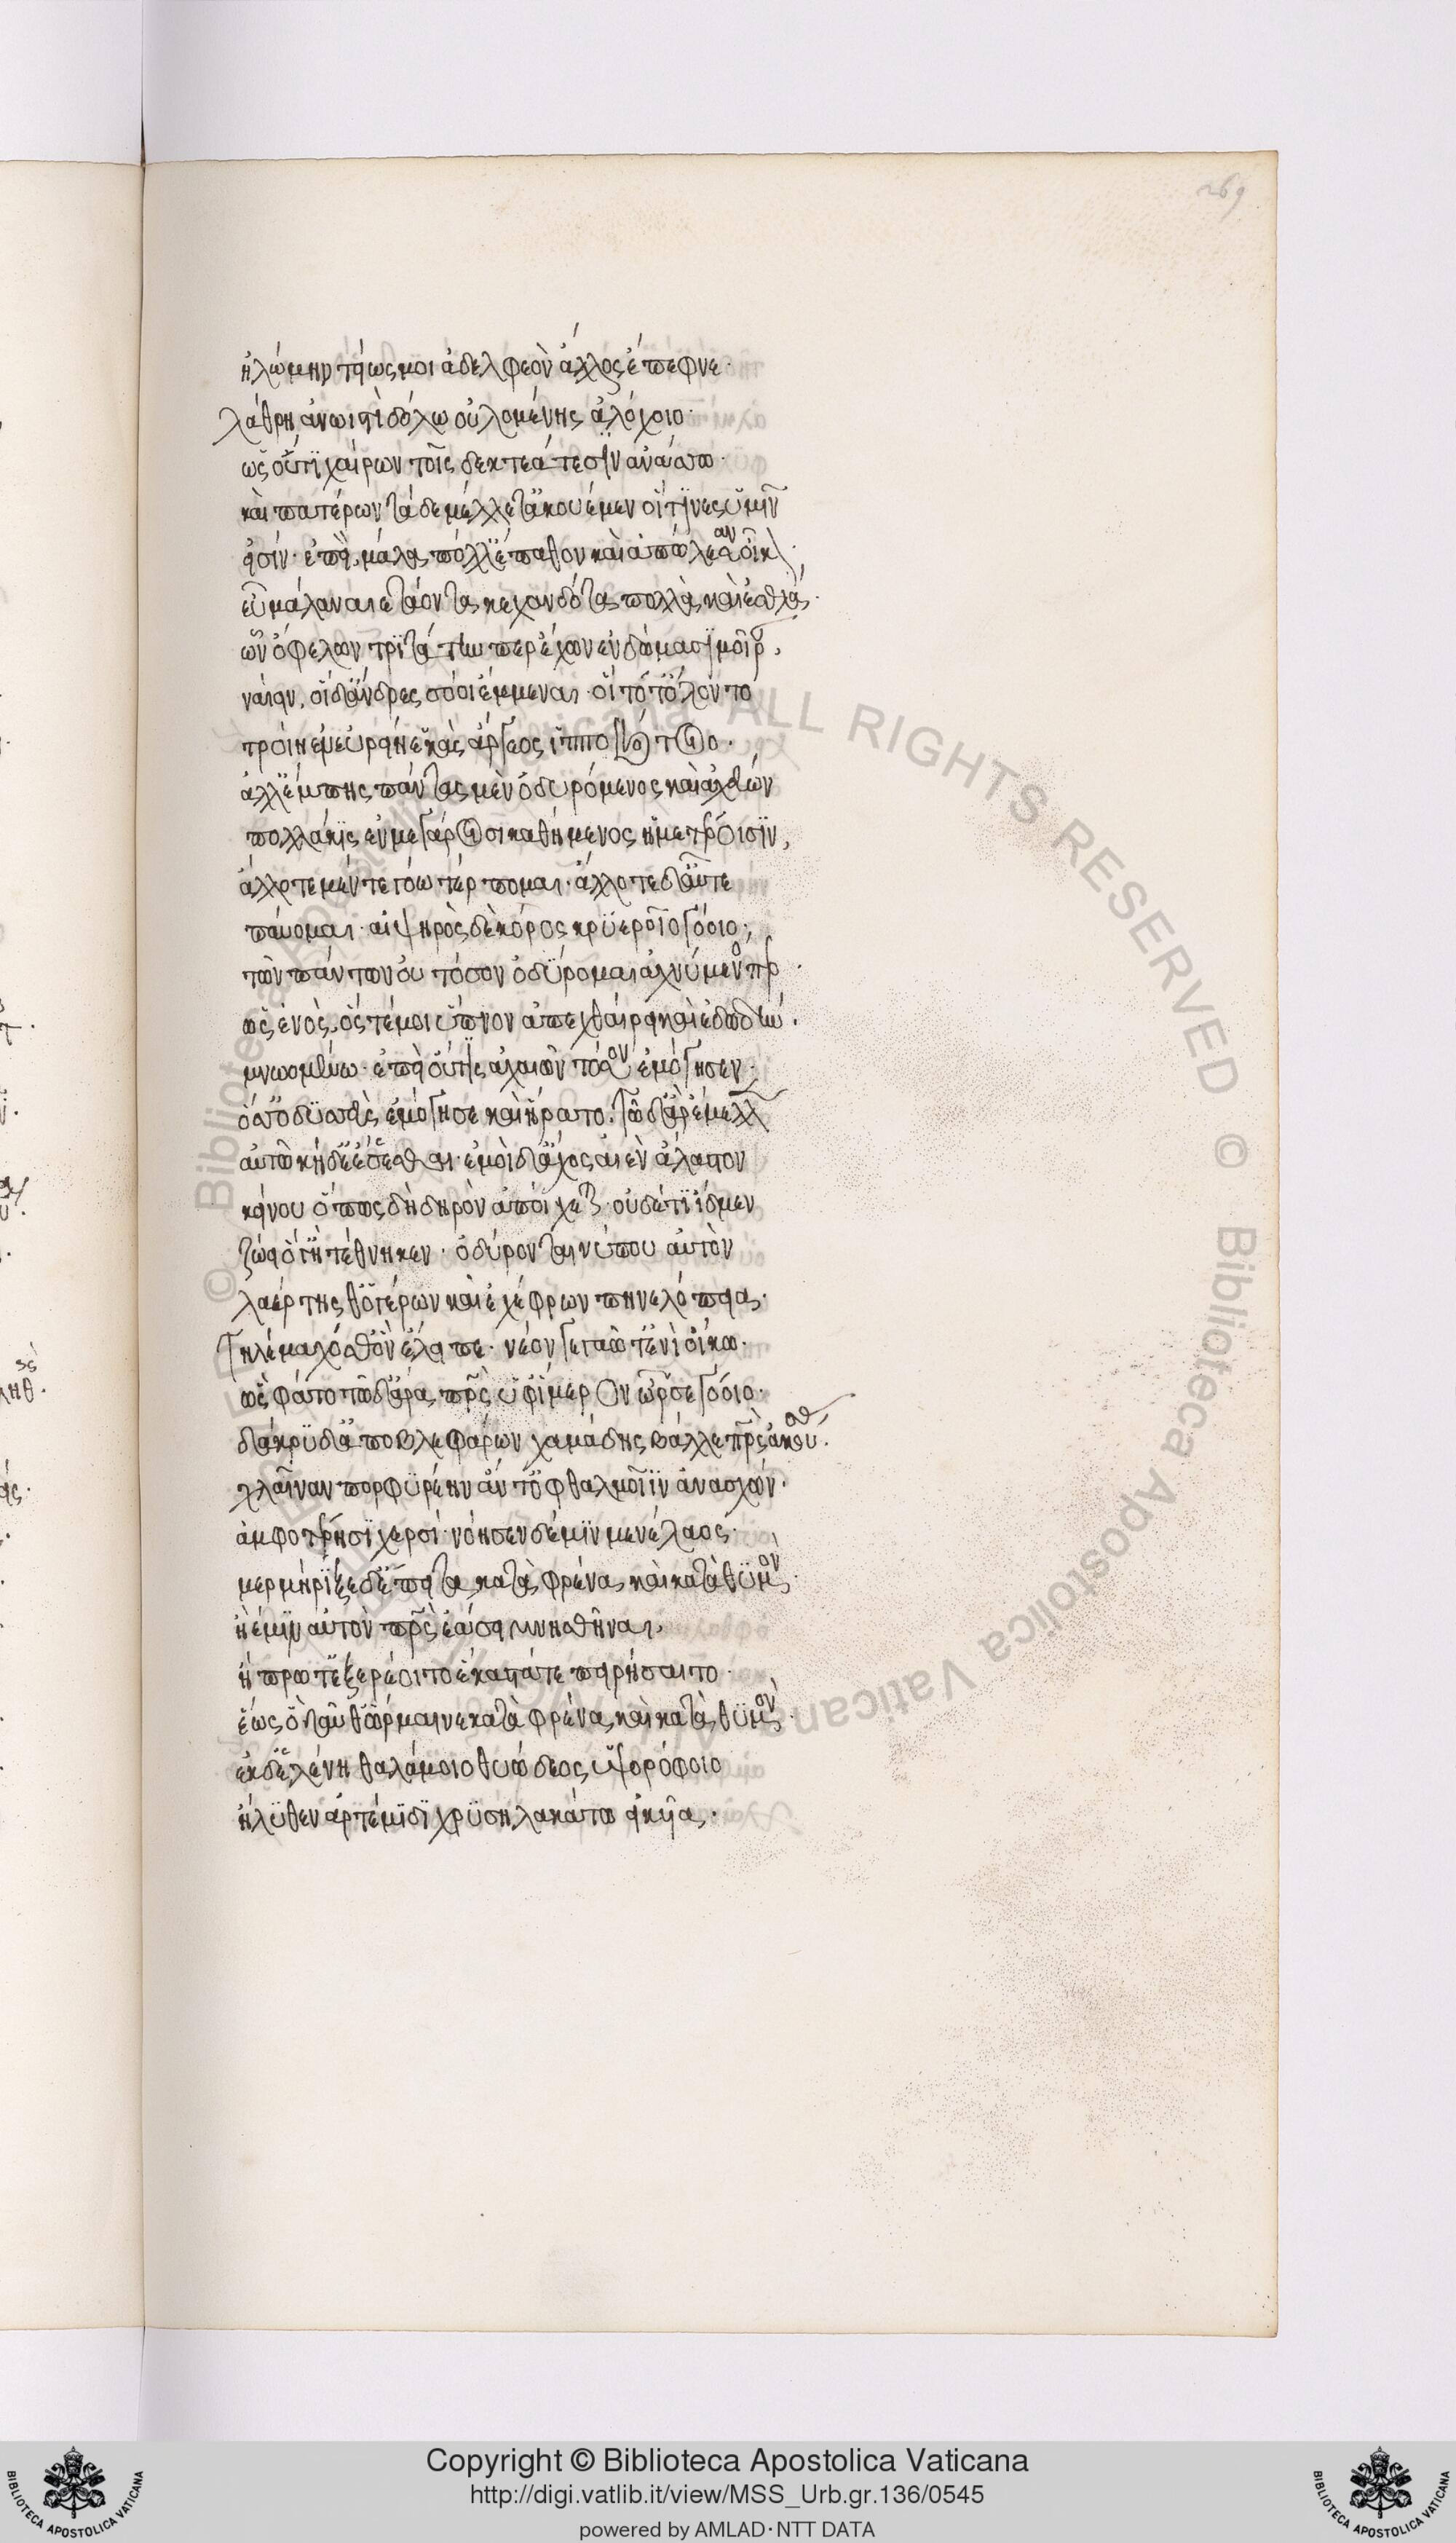 269
ἠλώμην τείως μοι ἀδελφεὸν ἄλλος ἔπεφνε·
λάθρη ἀνωιστὶ δόλω οὐλομένης ἀλόχοιο·
ὣς οὔτϊ χαίρων τοῖς δε κτεάτεσϊν ἀνάσσω·
καὶ πατέρων τάδε μέλλετ ἀκουέμεν οἵ τϊνες ὕμϊν
εἰσίν· ἐπεὶ μάλα πόλλ ἔπαθον καὶ ἀπώλεσαν οἶκ
εὖ μάλα ναιετάοντα κεχανδότα πολλὰ καὶ ἐσθλά·
ὧν ὄφελον τρϊτάτην περ ἔχων ἐν δώμασϊ μοῖρ
ναίειν, οἱ δ ἄνδρες σόοι ἔμμεναι· οἳ τότ ὄλοντο
τροίη ἐν εὐρείη ἑκὰς ἄργεος ἱπποβότοιο·
ἀλλ ἔμπης πάντας μὲν ὀδυρόμενος καὶ ἀχεύων
πολλάκϊς ἐν μεγάροισι καθήμενος ἡμετέροισϊν,
ἄλλοτε μέν τε γόω τέρπομαι· ἄλλοτε δ αὖτε
παύομαι· αἰψηρὸς δὲ κόρος κρϋεροῖο γόοιο·
τῶν πάντων οὐ τόσον ὀδύρομαι ἀχνύμενός περ·
ὡς ἑνὸς, ὅς τέ μοι ὕπνον ἀπεχθαίρει καὶ ἐδωδὴν·
μνωομένω· ἐπεὶ οὔτις ἀχαιῶν τόσσον ἐμόγησεν·
ὅσσ ὀδϋσσεὺς ἐμόγησε καὶ ἤρατο. τῶ δ ἄρ ἔμελλ
αὐτῶ κήδε ἔσεσθαι· ἐμοὶ δ ἄχος αἰὲν ἄλαστον
κείνου ὅπως δὴ δηρὸν ἀποίχεται· οὐδέ τϊ ἴδμεν
ζώει ὅγ ἢ τέθνηκεν· ὀδύρονται νύ που αὐτὸν
λαέρτης θ ὁ γέρων καὶ ἐχέφρων πηνελόπεια·
τηλέμαχός θ ὃν ἔλειπε· νέον γεγαῶτ ἐνὶ οἴκω·
ὣς φάτο τῶ δ ἄρα πατρὸς ὑφ ἵμερον ὦρσε γόοιο·
δάκρϋ δ ἀπο βλεφάρων χαμάδης βάλλε πατρὸς ἀκούσ
χλαῖναν πορφϋρέην ἄντ ὀφθαλμοῖϊν ἀνασχών·
ἀμφοτέρησϊ χερσί· νόησεν δέ μϊν μενέλαος·
μερμήρϊξε δ ἔπειτα κατὰ φρένα καὶ κατὰ θϋμὸν
ἠέ μϊν αὐτὸν πατρὸς ἐάσει μνησθῆναι,
ἢ πρῶτ ἐξερέοιτο ἕκαστά τε πειρήσαιτο·
ἕως ὁ ταῦθ ὥρμαινε κατὰ φρένα καὶ κατὰ θϋμὸν
ἐκ δ ἑλένη θαλάμοιο θυώδεος ὑψορόφοιο
ἤλϋθεν ἀρτέμϊδϊ χρϋσηλακάτω εἰκυῖα·
© Biblioteca Apostolica Vaticana ALL RIGHTS RESERVED © Biblioteca Apostolica Vaticana
Copyright © Biblioteca Apostolica Vaticana
http://digi.vatlib.it/view/MSS_Urb.gr.136/0545
powered by AMLAD·NTT DATA
BIBLIOTECA APOSTOLICA VATICANA
BIBLIOTECA APOSTOLICA VATICANA